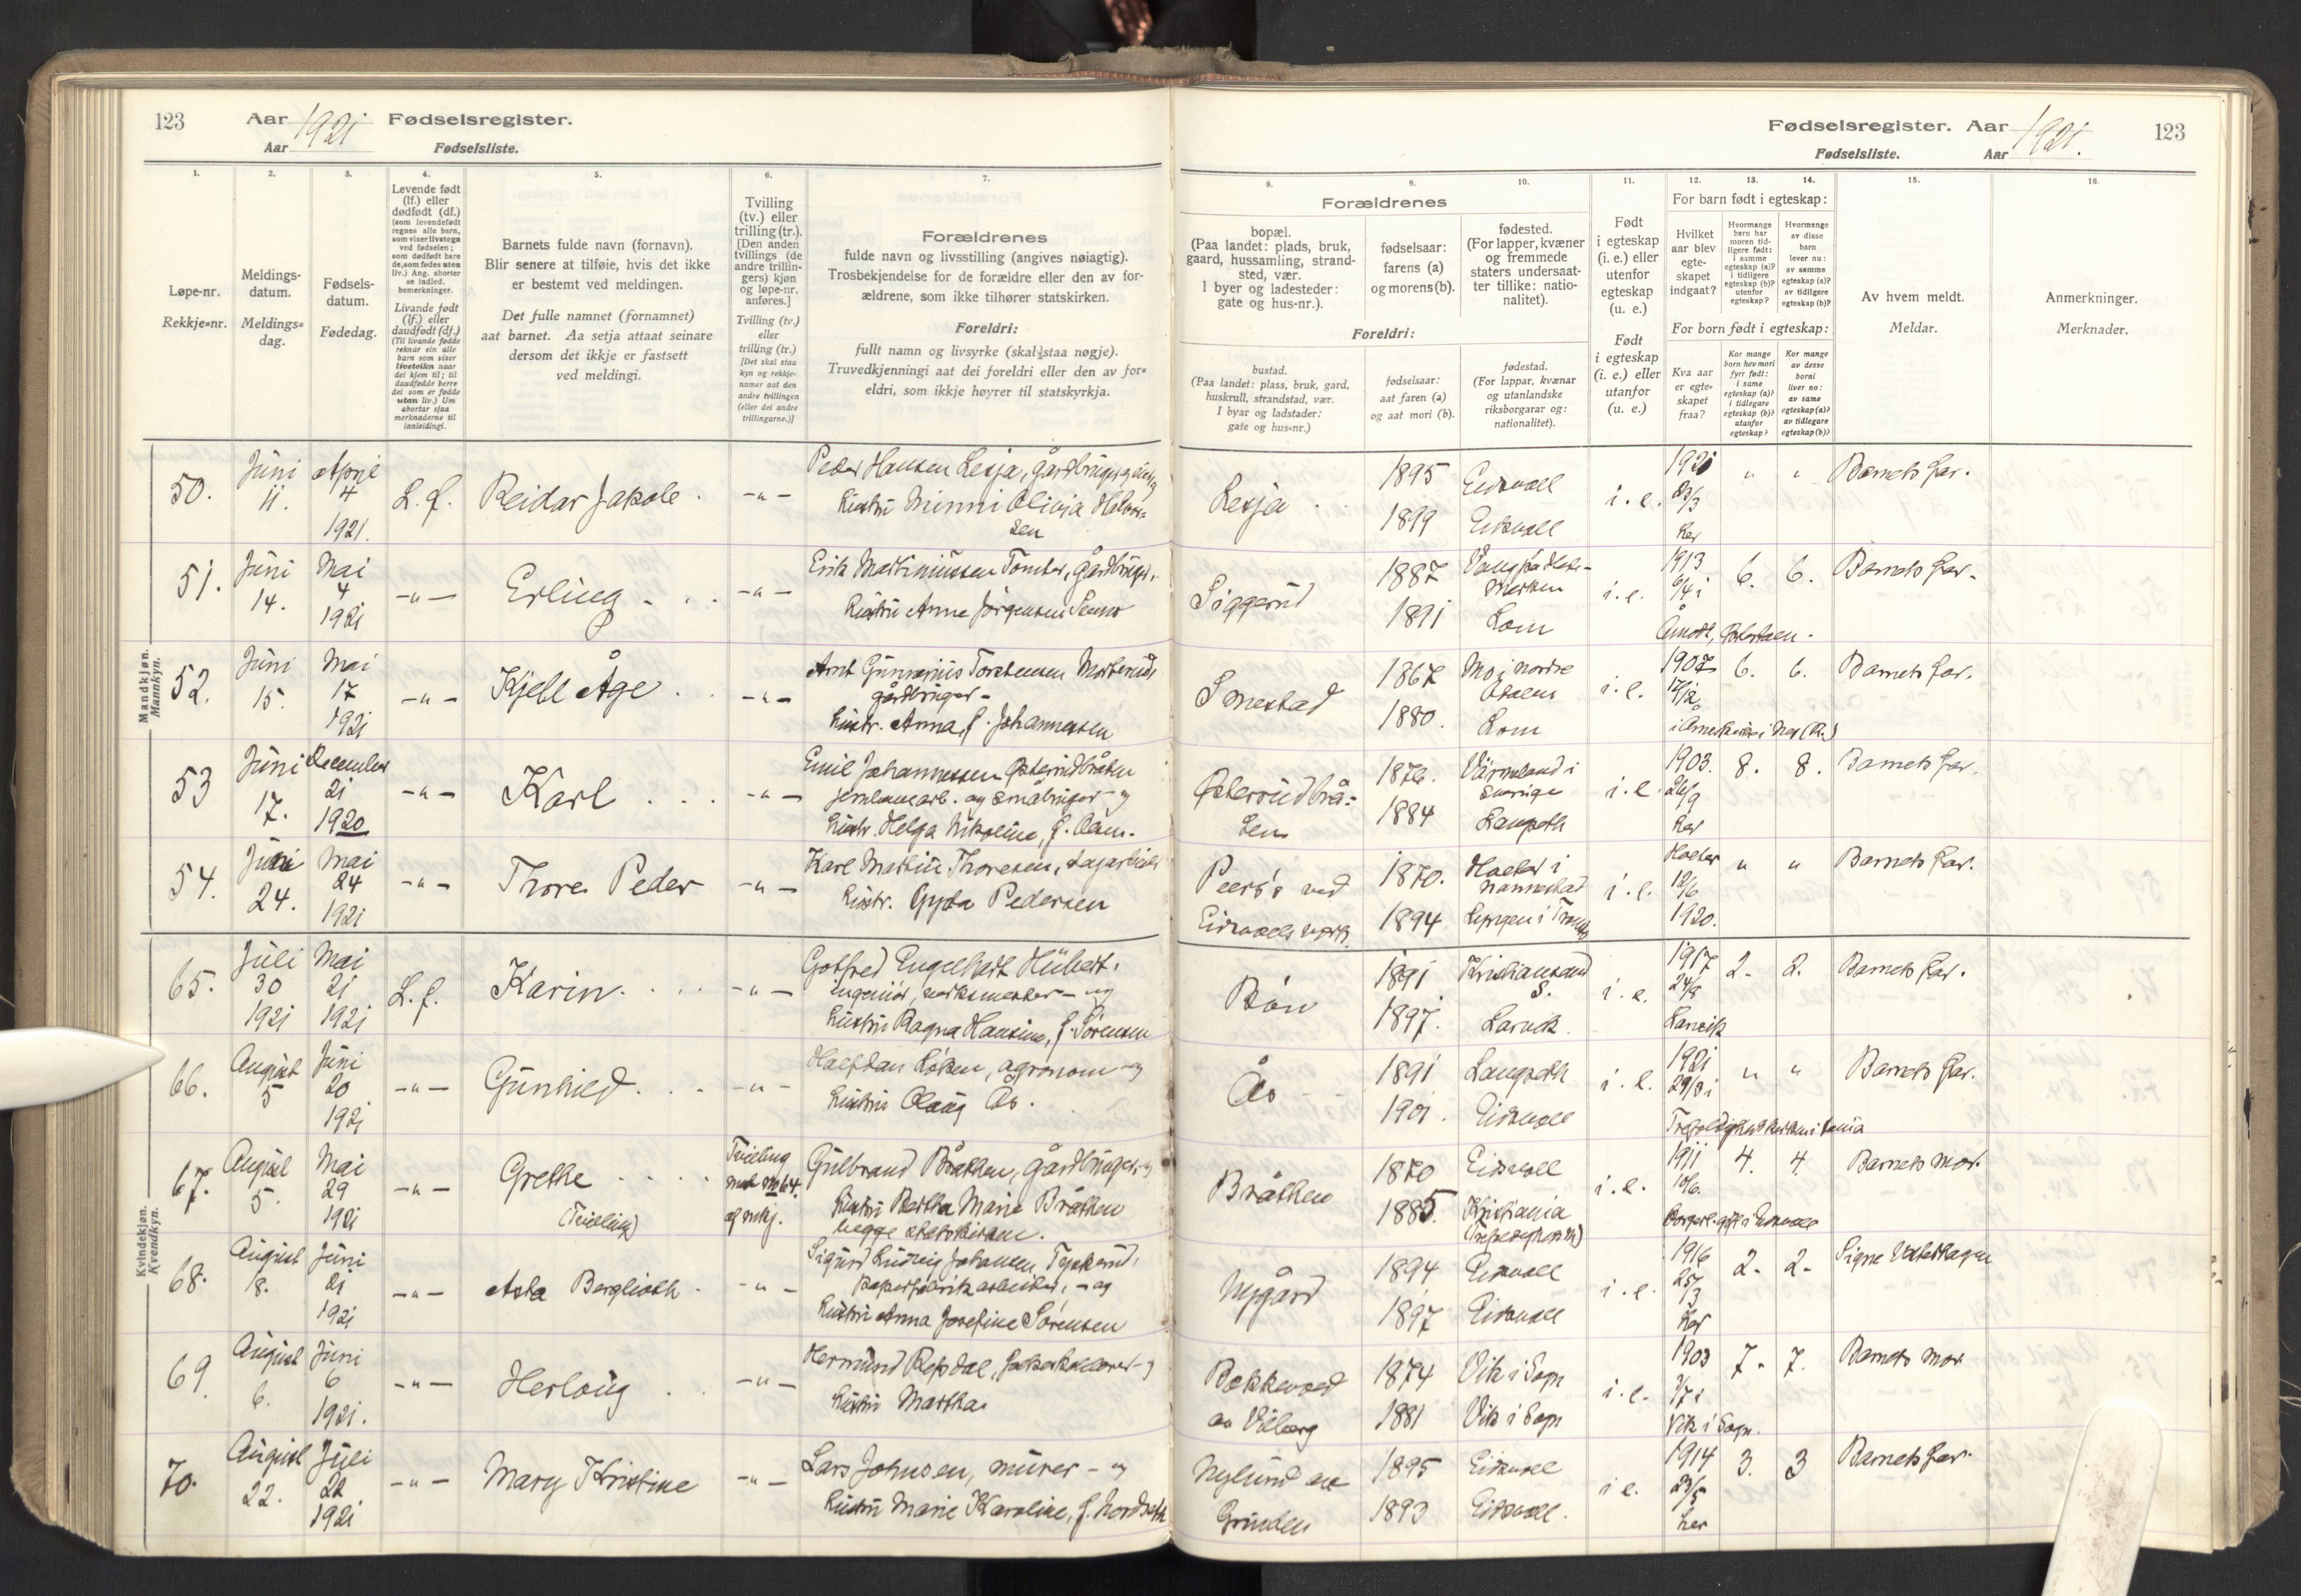 123 Aar 1921 Fødselsregister.
Aar Fødselsliste.
Fødselsregister. Aar 1921. 123
Fødselsliste. Aar
1. 2. 3. 4. 5. 6. 7.
Løpe-nr.
Rekkje=nr.
Meldings-
datum.
Meldings=
dag.
Fødsels-
datum.
Fødedag.
Levende født
(lf.) eller
dødfødt (df.)
(som levendefødt
regnes alle barn,
som viser livstegn
ved fødselen;
som dødfødt bare
de, som fødes uten
liv.) Ang. aborter
se indled.
bemerkninger.
Livande født
(lf.) eller
daudfødt (df.)
(Til livande fødde
reknar ein alle
barn som viser
livsteikn naar
dei kjem til; til
daudfødde berre
dei som er fødde
utan liv.) Um
abortar sjaa
merknaderne til
innleidingi.
Barnets fulde navn (fornavn).
Blir senere at tilføie, hvis det ikke
er bestemt ved meldingen.
Det fulle namnet (fornamnet)
aat barnet. Aa setja attaat seinare
dersom det ikkje er fastsett
ved meldingi.
Tvilling
(tv.) eller
trilling (tr.).
[Den anden
tvillings (de
andre trillin-
gers) kjøn
og løpe-nr.
anføres.]
Tvilling (tv.)
eller
trilling (tr.)
[Det skal staa
kyn og rekkje-
numer aat den
andre tvillingen
(eller dei andre
trillingarne.)]
Forældrenes
fulde navn og livsstilling (angives nøiagtig).
Trosbekjendelse for de forældre eller den av for-
ældrene, som ikke tilhører statskirken.
Foreldri:
fullt namn og livsyrke (skal staa nøgje).
Truvedkjenningi aat dei foreldri eller den av for=
eldri, som ikkje høyrer til statskyrkja.
8. 9. 10. 11. 12. 13. 14. 15. 16.
Forældrenes
bopæl.
(Paa landet: plads, bruk,
gaard, hussamling, strand-
sted, vær.
I byer og ladesteder:
gate og hus-nr.).
fødselsaar:
farens (a)
og morens (b).
fødested.
(For lapper, kvæner
og fremmede
staters undersaat-
ter tillike: natio-
nalitet).
Foreldri:
bustad.
(Paa landet: plass, bruk, gard,
huskrull, strandstad, vær.
I byar og ladstader:
gate og hus=nr.)
fødselsaar:
aat faren (a)
og aat mori (b).
fødestad.
(For lappar, kvænar
og utanlandske
riksborgarar og:
nationalitet).
Født
i egteskap
(i. e.) eller
utenfor
egteskap
(u. e.)
Født
i egteskap
(i. e.) eller
utanfor
(u. e.)
For barn født i egteskap:
Hvilket
aar blev
egte-
skapet
indgaat?
Hvormange
barn har
moren tid-
ligere født:
i samme
egteskap (a)?
i tidligere
egteskap (b)?
utenfor
egteskap?
Hvormange
av disse
barn
lever nu:
av samme
egteskap (a)?
av tidligere
egteskap (b)?
For born født i egteskap:
Kva aar
er egte=
skapet
fraa?
Kor mange
born hev mori
fyrr født:
i same
egteskap (a)?
i tidlegare
egteskap (b)?
utanfor
egteskap?
Kor mange
av desse
borni
liver no:
av same
egteskap (a)?
av tidlegare
egteskap (b)?
Av hvem meldt.
Meldar.
Anmerkninger.
Merknader.
Mandkjøn.
Mannkyn.
50. Juni 11. April 4 1921. L. f. Reidar Jakob. -"-
Peder Hansen Lesja, gårdbruger og
hustru Minni Olivia Halvor=
sen
Lesja 1895 Eidsvoll 1899 Eidsvoll i. e. 1921 23/3 her " " Barnets far.
51. Juni 14. Mai 4 1921 -"- Erling -"-
Erik Martiniussen Tomter, gårdbruger,
hustru Anna Jørgensen
Siggerud 1887 1891 Lom i. e. 1913 6/4 i 6. 6. Barnets far.
52. Juni 15. Mai 17 1921 -"- Kjell Åge -"-
Arnt Torstensen
gårdbruger -
hustr. Anna, f. Johannessen
Smestad 1867 Mo i nordre Odalen 1880. Lom i. e. 1907 6. 6. Barnets far.
53 Juni 17. December 21 1920 -"- Karl -"-
Emil Johannessen Østerudbråten
og småbruger og
hustr. Helga Nikoline, f.
Østerudbrå=
ten 1876. Värmland i Sverige 1884 Langseth i. e. 1903. 26/9 her 8. 8. Barnets far.
54. Juni 24. Mai 24 1921 -"- Thore Peder -"-
Karl Martin Thoresen,
hustr. Gyda Pedersen
ved
Eidsvolls verk. 1870. Holter i Nannestad 1894 i. e. Holter 12/6 1920. " " Barnets far.
Kvindekjøn.
Kvendkyn.
65. Juli 30 1921 Mai 21 1921 L. f. Karin -"-
Gotfred Engelhart Hübert,
ingeniør, verksmester - og
hustru Ragna Hansine, f. Sørensen
Bøn 1891 Kristiansand S. 1897. Larvik. i. e. 1917 24/8 Larvik 2. 2. Barnets far.
66. August 5 Juni 20 1921 -"- Gunhild -"-
Halfdan Løken, agronom - og
hustru Olaug Ås.
Ås 1891 Langseth 1901. Eidsvoll i. e. 1921 " " Barnets far.
67. August 5. Mai 29 1921 -"- Grethe
(Tvilling) Tvilling
med no 64.
Gulbrand Bråthen, gårdbruger - og
hustru Bertha Marie Bråthen
begge
Bråthen 1870 Eidsvoll 1885. Kristiania i. e. 1911 10/6. 4. 4. Barnets mor.
68. August 8. Juni 21 1921 -"- Asta Berglioth -"-
Sigurd Ludvig Johansen
papirfabrikarbeider, - og
hustru Anna Josefine Sørensen
Nygård 1894 Eidsvoll 1897 Eidsvoll i. e. 1916 25/3 her 2. 2. Signe
69. August 6. Juni 6 1921. -"- Herlaug -"-
Hermund Repdal, - og
hustru Martha
1874 Vik i Sogn 1881 Vik i Sogn i. e. 1903 Vik i Sogn. 7. 7. Barnets mor.
70. August 22. Juli 22 1921 -"- Mary Kristine -"-
Lars Johnsen, murer - og
hustru Marie Karoline, f. Nordseth
Nylund av
Grinden 1895 Eidsvoll 1893 Eidsvoll. i e. 1914 23/5 her 3. 3 Barnets far.